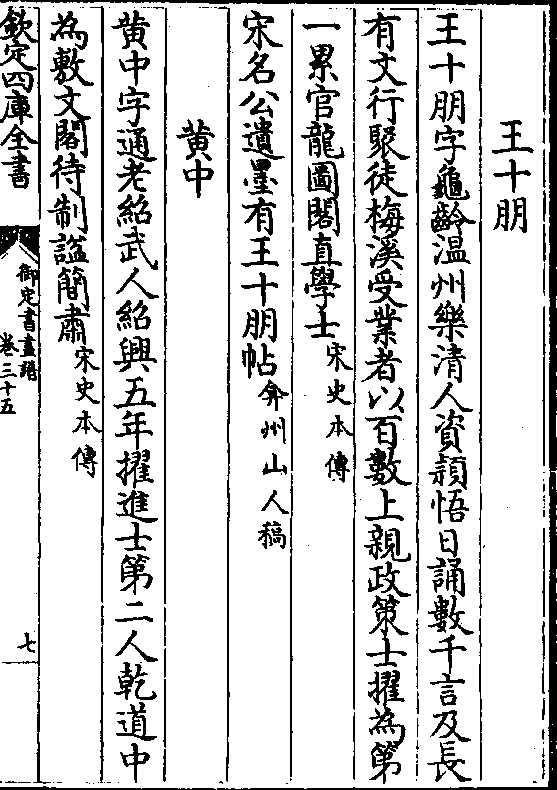 王十朋
王十朋字龜齡温州樂清人資頴悟日誦數千言及長
有文行聚徒梅溪受業者以百數上親政策士擢為第
一累官龍圖閣直學士宋史本傳
宋名公遺墨有王十朋帖弇州山人稿
黄中
黄中字通老紹武人紹興五年擢進士第二人乾道中
為敷文閣待制諡簡肅宋史本傳
欽定四庫全書
御定書畫譜
卷三十五
七